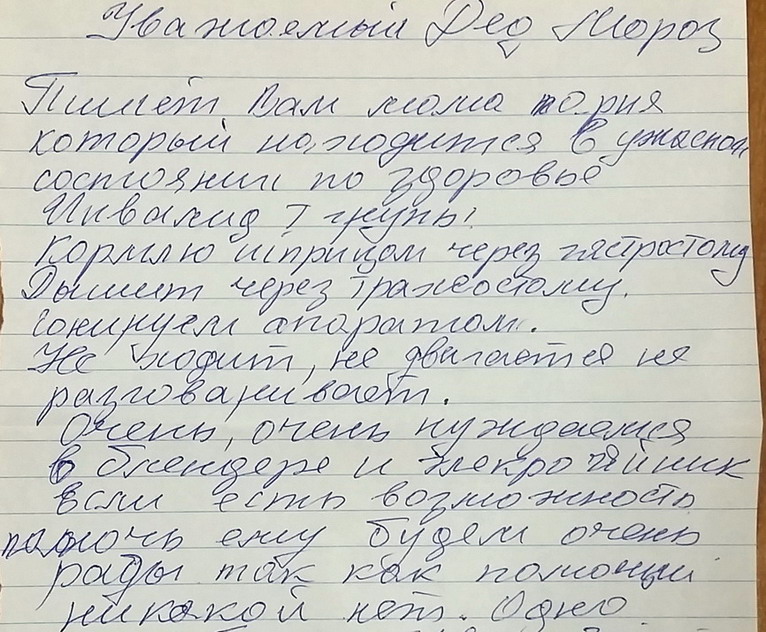 Уважаемый Дед Мороз
Пишет Вам мама парня
который находится в ужасном
состоянии по здоровье
Инвалид I групы.
Кормлю шприцом через гястростому
Дышит через трахеостому.
Санируем апаратом.
Не ходит, не двигается не
разговаривает.
Очень, очень нуждаемся
в блендере и элекрочяйник
Если есть возможность
памочь ему будем очень
рады так как помощи
никакой нет. Одно